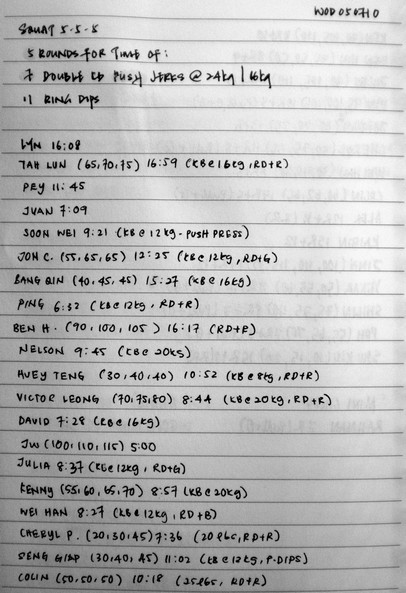 WOD 050710
SQUAT 5-5-5
5 ROUNDS FOR TIME OF:
7 DOUBLE KB PUSH JERKS @ 24kg | 16kg
11 RING DIPS
LYN 16:08
TAH LUN (65,70,75) 16:59 (KB@16kg, RD+R)
PEY 11:45
JUAN 7:09
SOON WEI 9:21 (KB@12kg - PUSH PRESS)
JON C. (55,65,65) 12:25 (KB@16kg, RD+G)
BANG QIN (40,45,45) 15:27 (KB@16kg)
PING 6:32 (KB@12kg, RD+R)
BEN H. (90,100,105) 16:17 (RD+R)
NELSON 9:45 (KB@20kg)
HUEY TENG (30,40,40) 10:52 (KB@8kg, RD+R)
VICTOR LEONG (70,75,80) 8:44 (KB@20kg, RD+R)
DAVID 7:28 (KB@16kg)
JW (100,110,115) 5:00
JULIA 8:37 (KB@12kg, RD+G)
KENNY (55,60,65,70) 8:57 (KB@20kg)
WEI HAN 8:27 (KB@12kg, RD+B)
CHERYL P. (20,30,45) 7:36 (20lbs, RD+R)
SENG GIAP (30,40,45) 11:02 (KB@12kg, P-DIPS)
COLIN (50,50,50) 10:18 (25lbs, RD+R)